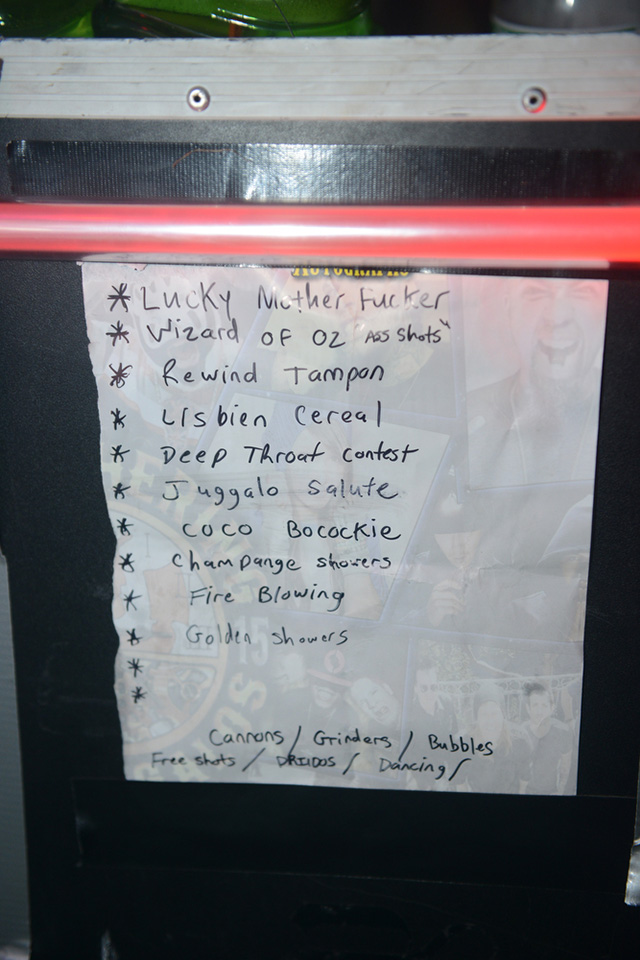 AUTOGRAPHS
* LUCKY Mother Fucker
* Wizard OF OZ Ass shots"
* Rewind Tampon
* Lisbien Cereal
* Deep Throat contest
* Juggalo Salute
* COCO Bocockie
* Champange showers
* Fire Blowing
* Golden showers
*
*
Cannons / Grinders / Bubbles
Free shots / / Dancing /